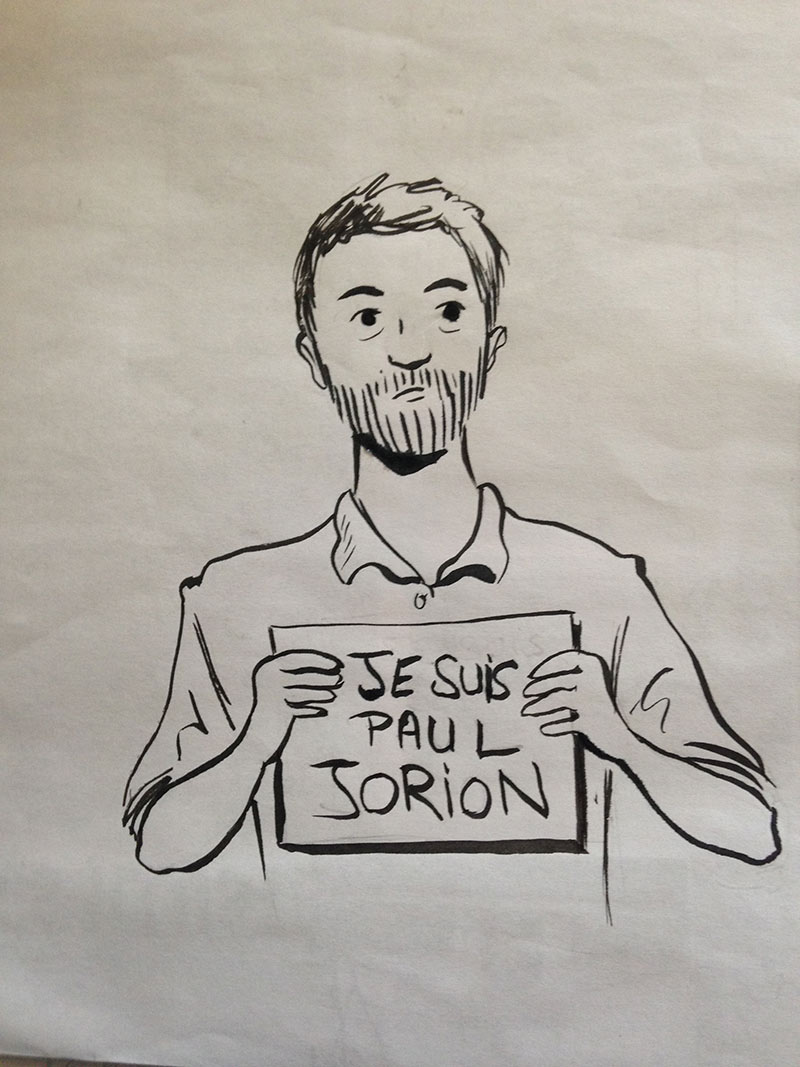 JE SUiS
PAUL
JORiON